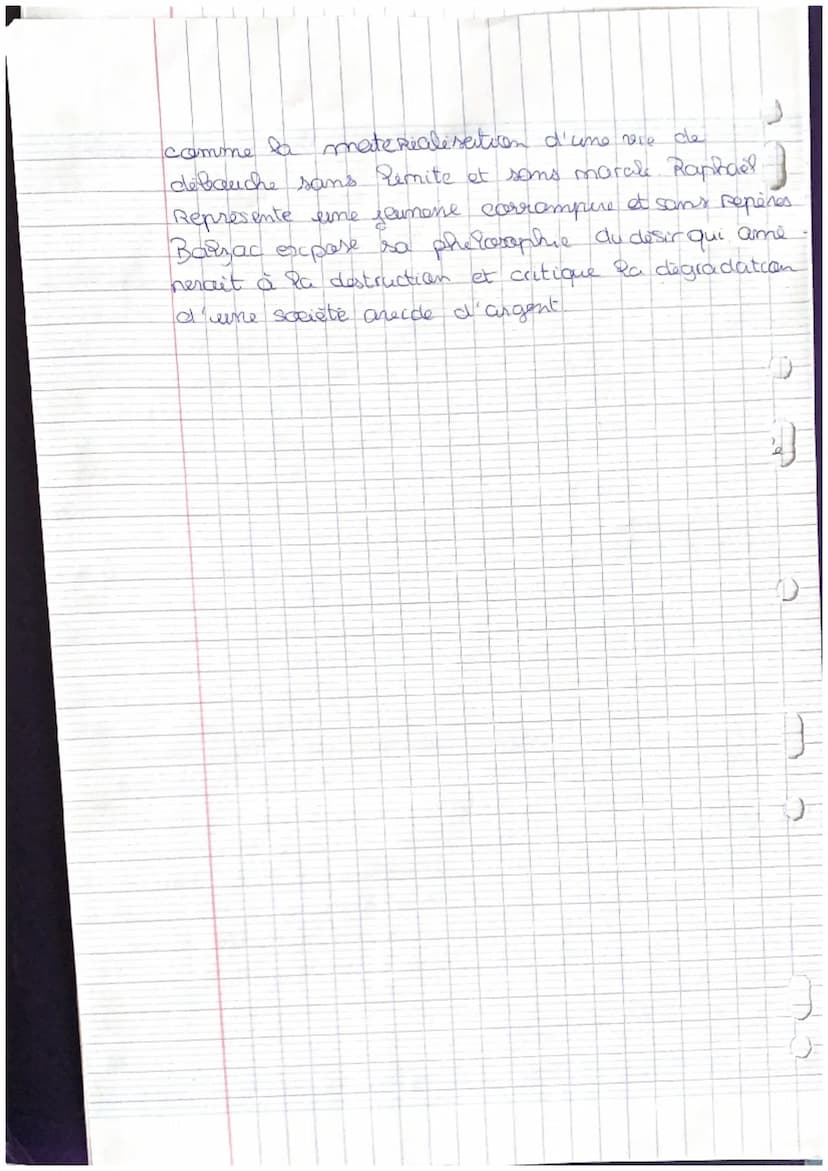 comme la materialisation d'une vie de
débauche sans limite et sans morale. Raphaël
Représente une jeunesse corrompue et sans repères
Balzac expose sa philosophie du désir qui amè-
nerait à la destruction et critique la dégradation
d'une société avide d'argent.